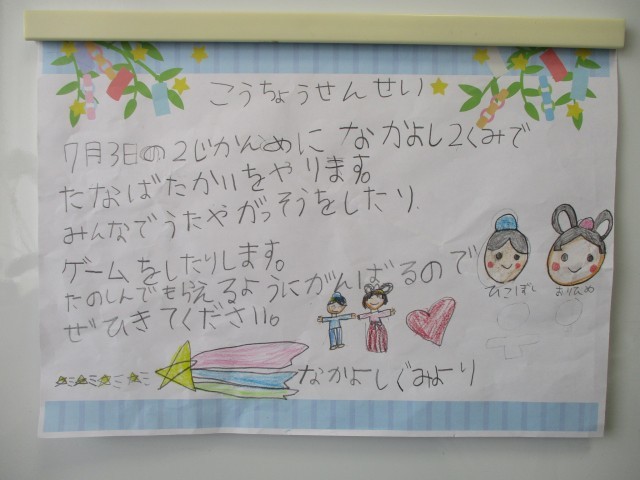 こうちょうせんせい
7月3日の2じかんめに なかよし2くみで
たなばたかいをやります。
みんなでうたやがっそうをしたり
ゲームをしたりします。
たのしんでもらえるようにがんばるので
ぜひきてください。
ひこぼし
おりひめ
なかよしぐみより